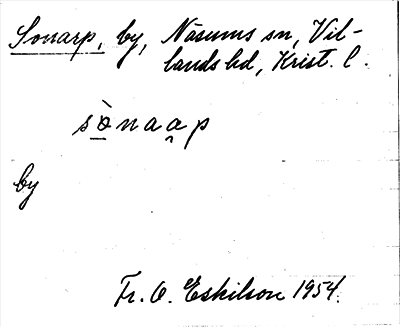 Sonarp, by, Näsums sn, Vil-
lands hd, Krist. l.
sò̱naa̭p
by
Fr. O. Eskilson 1954.